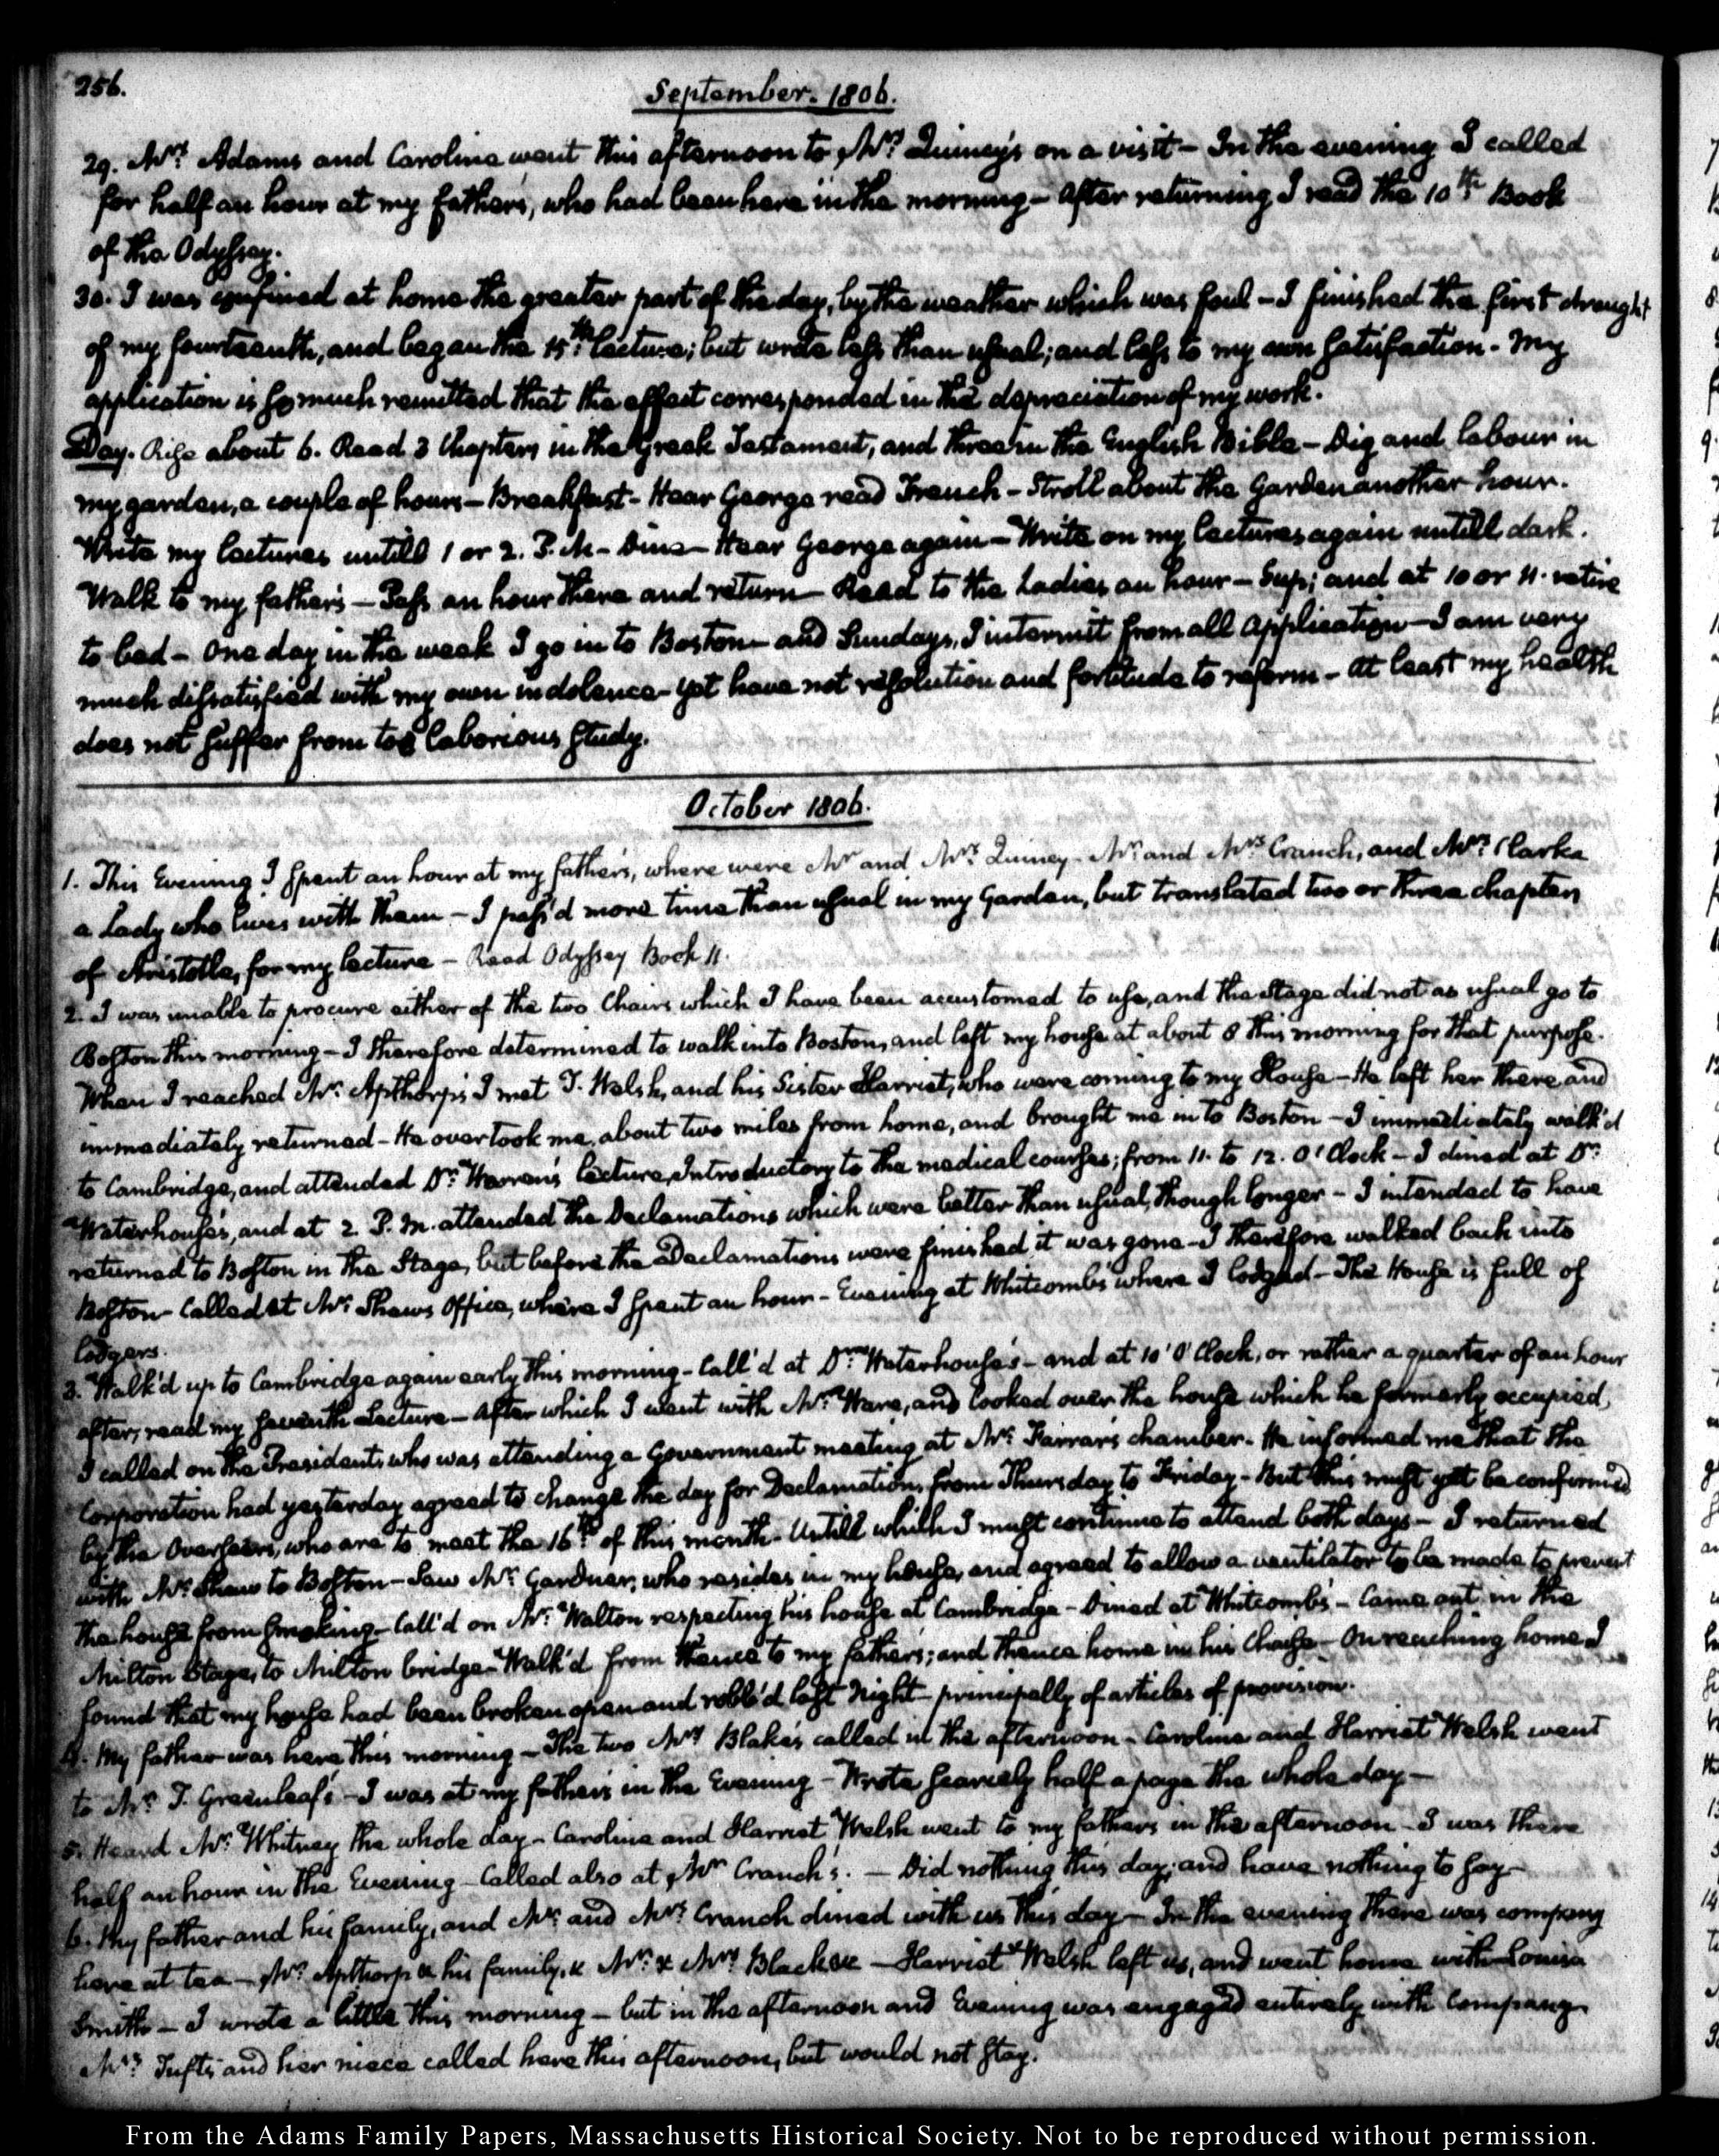 256.
September. 1806.
29. Mrs. Adams and Caroline went this afternoon to Mrs. Quincy's on a visit — In the evening I called
for half an hour at my father's, who had been here in the morning — After returning I read the 10th. Book
of the Odyssey.
30. I was confined at home the greater part of the day, by the weather which was foul — I finished the first draught
of my fourteenth, and began the 15th. lecture; but wrote less than usual; and less to my own satisfaction. My
application is so much remitted that the effect corresponded in the depreciation of my work.
Day. Rise about 6. Read 3 Chapters in the Greek Testament, and three in the English Bible — Dig and labour in
my garden, a couple of hours — Breakfast — Hear George read French — Stroll about the Garden another hour.
Write my lectures untill 1 or 2. P.M — Dine — Hear George again — Write on my lectures again untill dark.
Walk to my father's — Pass an hour there and return — Read to the Ladies an hour — Sup; and at 10 or 11. retire
to bed — One day in the week I go in to Boston — and Sundays, I intermit from all application — I am very
much dissatisfied with my own indolence — yet have not resolution and fortitude to reform — At least my health
does not suffer from too laborious study.
October 1806.
1. This Evening I spent an hour at my father's, where were Mr and Mrs. Quincy — Mr. and Mrs. Cranch, and Mrs. Clarke
a Lady who lives with them — I pass'd more time than usual in my Garden, but translated two or three chapters
of Aristotle, for my lecture — Read Odyssey Book 11.
2. I was unable to procure either of the two Chairs which I have been accustomed to use, and the Stage did not as usual go to
Boston this morning — I therefore determined to walk into Boston, and left my house at about 8 this morning for that purpose.
When I reached Mr. Apthorp's I met T. Welsh, and his Sister Harriet, who were coming to my House — He left her there and
immediately returned — He overtook me, about two miles from home, and brought me in to Boston — I immediately walk'd
to Cambridge, and attended Dr. Warren's lecture, Introductory to the medical courses; from 11. to 12. O'Clock — I dined at Dr.
Waterhouse's, and at 2 P.M. attended the Declamations which were better than usual, though longer — I intended to have
returned to Boston in the Stage, but before the Declamations were finished, it was gone — I therefore walked back into
Boston — Called at Mr. Shaws Office, where I spent an hour — Evening at Whitcombs where I lodged — The House is full of
lodgers.
3. Walk'd up to Cambridge again early this morning — Call'd at Dr. Waterhouse's — and at 10 O'Clock, or rather a quarter of an hour
after, read my seventh Lecture — After which I went with Mr. Ware, and looked over the house which he formerly occupied,
I called on the President, who was attending a Government meeting at Mr. Farrar's chamber. He informed me that the
Corporation had yesterday agreed to change the day for Declamations, from Thursday to Friday — But this must yet be confirmed
by the Overseers, who are to meet the 16th. of this month. Untill which I must continue to attend both days — I returned
with Mr. Shaw to Boston — Saw Mr. Gardner, who resides in my house, and agreed to allow a ventilator to be made to prevent
the house from smoking — Call'd on Mr. Walton respecting his house at Cambridge — Dined at Whitcomb's — Came out in the
Milton Stage, to Milton bridge — Walk'd from thence to my father's; and thence home in his Chaise — On reaching home I
found that my house had been broken open and robb'd last Night — principally of articles of provision.
4. My father was here this morning — The two Mrs Blake's called in the afternoon — Caroline and Harriet Welsh went
to Mr. T. Greenleaf's — I was at my father's in the Evening — Wrote scarcely half a page the whole day —
5. Heard Mr. Whitney the whole day — Caroline and Harriet Welsh went to my father's in the afternoon — I was there
half an hour in the Evening — Called also at Mr Cranch's. — Did nothing this day; and have nothing to say —
6. My father and his family, and Mr. and Mrs. Cranch dined with us this day — In the evening there was company
here at tea — Mr. Apthorp & his family, & Mr. & Mrs Black &c — Harriet Welsh left us, and went home with Louisa
Smith — I wrote a little this morning — but in the afternoon and Evening was engaged entirely with company.
Mrs. Tufts and her niece called here this afternoon, but would not stay.
From the Adams Family Papers, Massachusetts Historical Society. Not to be reproduced without permission.